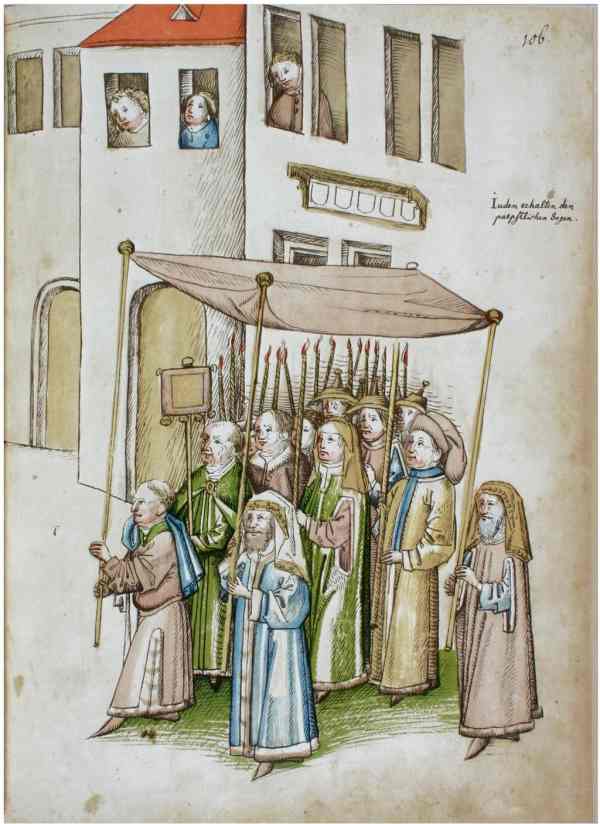 106.
Iuden erhalten den
paepstlichen Segen.